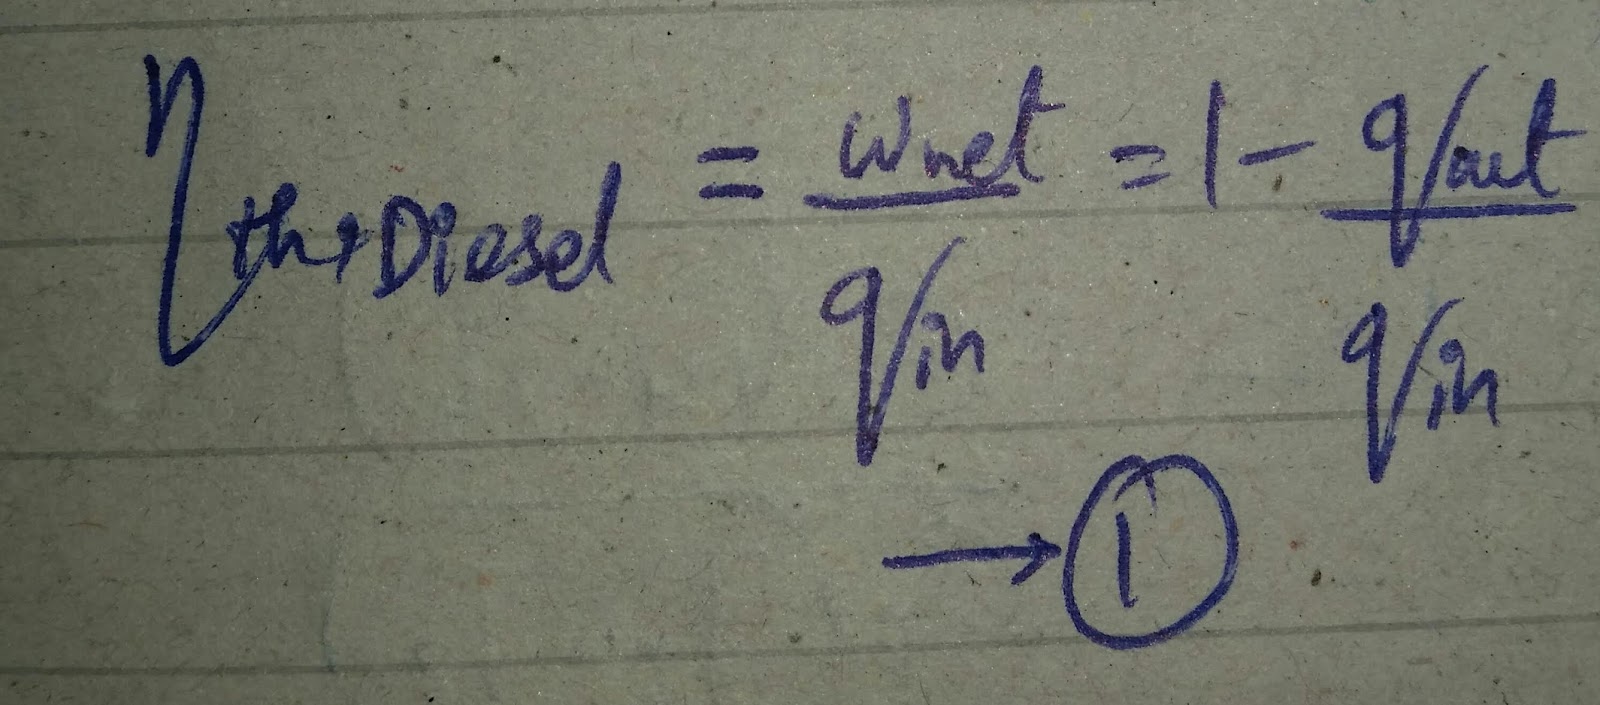 η th, Diesel = wnet / qin = 1 - qout / qin
→ ①